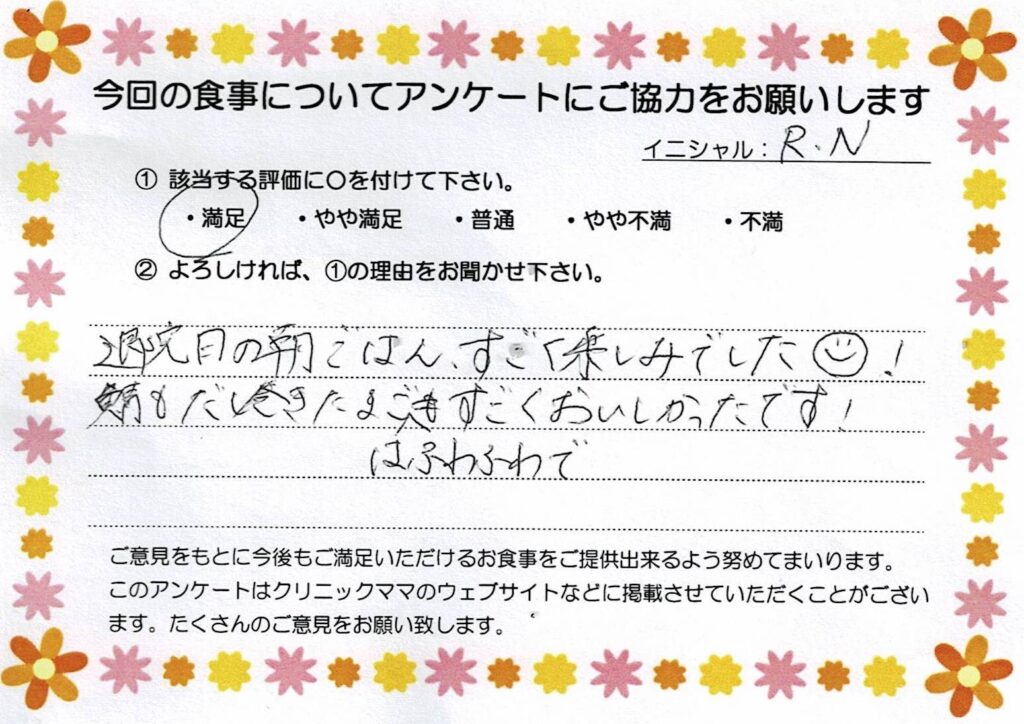 今回の食事についてアンケートにご協力をお願いします
イニシャル：R.N
① 該当する評価に〇を付けて下さい。
・満足 ・やや満足 ・普通 ・やや不満 ・不満
② よろしければ、①の理由をお聞かせ下さい。
退院日の朝ごはん、すごく楽しみでした☺！
鯖もだし巻きたまごもすごくおいしかったです！
はふわふわで
ご意見をもとに今後もご満足いただけるお食事をご提供出来るよう努めてまいります。
このアンケートはクリニックママのウェブサイトなどに掲載させていただくことがござい
ます。たくさんのご意見をお願い致します。